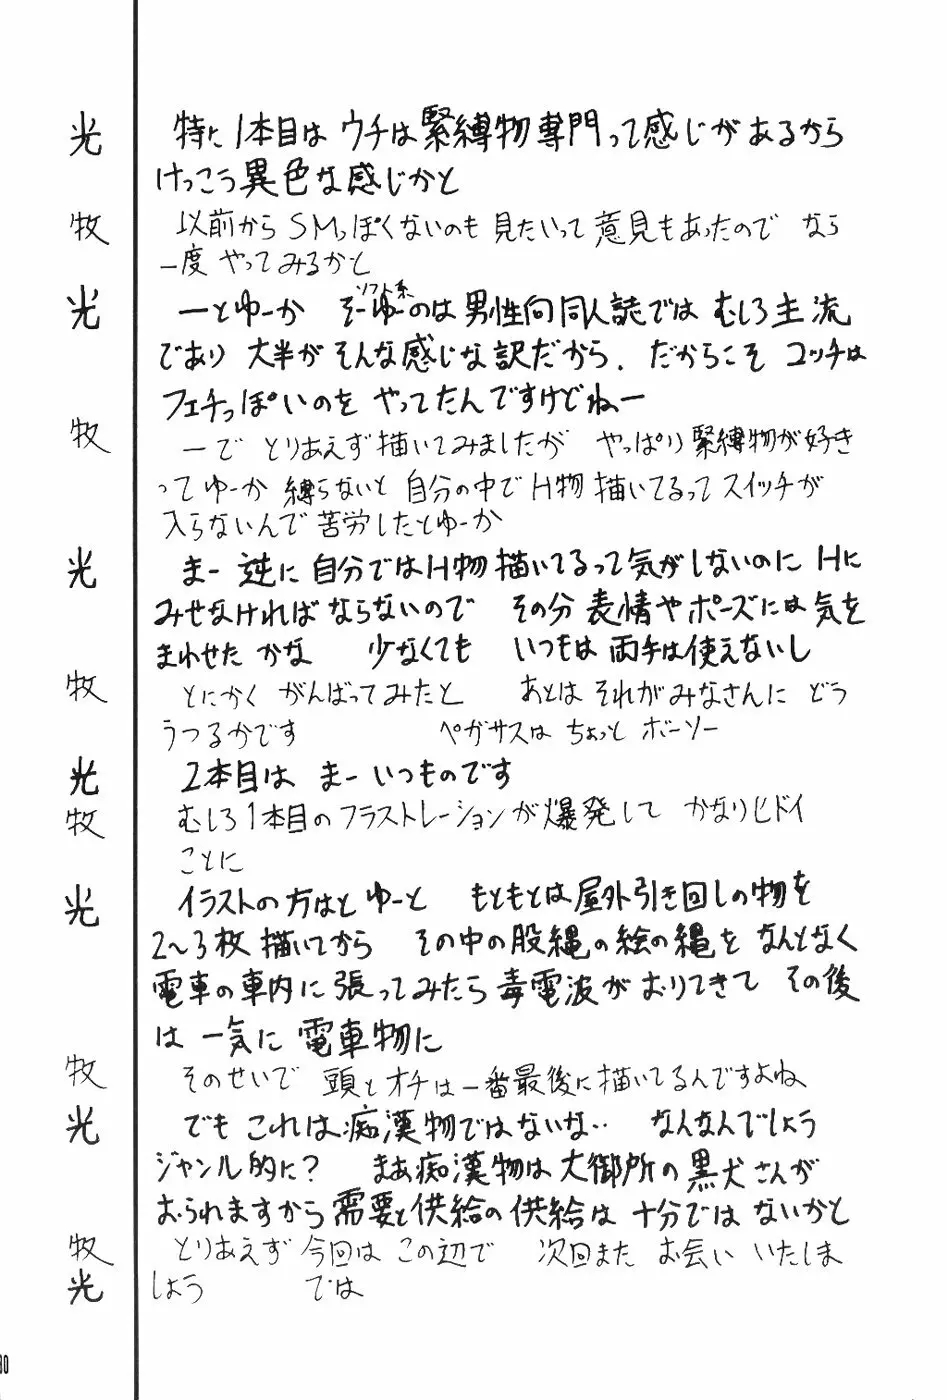 光 特に1本目は ウチは緊縛物専門って感じがあるから
けっこう異色な感じかと
牧 以前から SMっぽくないのも 見たいって 意見もあったので なら
一度 やってみるかと
光 ーとゆーか そーゆーのは男性向同人誌では むしろ主流
ソフト系
であり 大半が そんな感じな訳だから. だからこそ コッチは
フェチっぽいのを やってたんですけどねー
牧 ーで とりあえず描いてみましたが やっぱり緊縛物が好き
ってゆーか 縛らないと 自分の中で H物 描いてるって スイッチが
入らないんで 苦労したとゆーか
光 まー 逆に 自分では H物描いてるって気がしないのに Hに
みせなければ ならないので その分 表情やポーズには 気を
まわせた かな 少なくても いつもは 両手は使えないし
牧 とにかく がんばってみたと あとは それがみなさんに どう
うつるかです ペガサスは ちょっと ボーソー
光 2本目は まー いつものです
牧 むしろ 1本目のフラストレーションが 爆発して かなりヒドイ
ことに
光 イラストの 方はと ゆーと もともとは 屋外引き回しの物を
2〜3枚 描いてから その中の股縄の絵の縄を なんとなく
電車の車内に 張ってみたら 毒電波が おりてきて その後
は 一気に 電車物に
牧 そのせいで 頭と オチは 一番最後に描いてるんですよね
光 でも これは痴漢物ではないな‥ なんなんでしょう
ジャンル的に? まあ痴漢物は 大御所の 黒犬さんが
おられますから 需要と供給の 供給は 十分では ないかと
牧 とりあえず 今回は この辺で 次回また お会い いたしま
光 しょう では
30